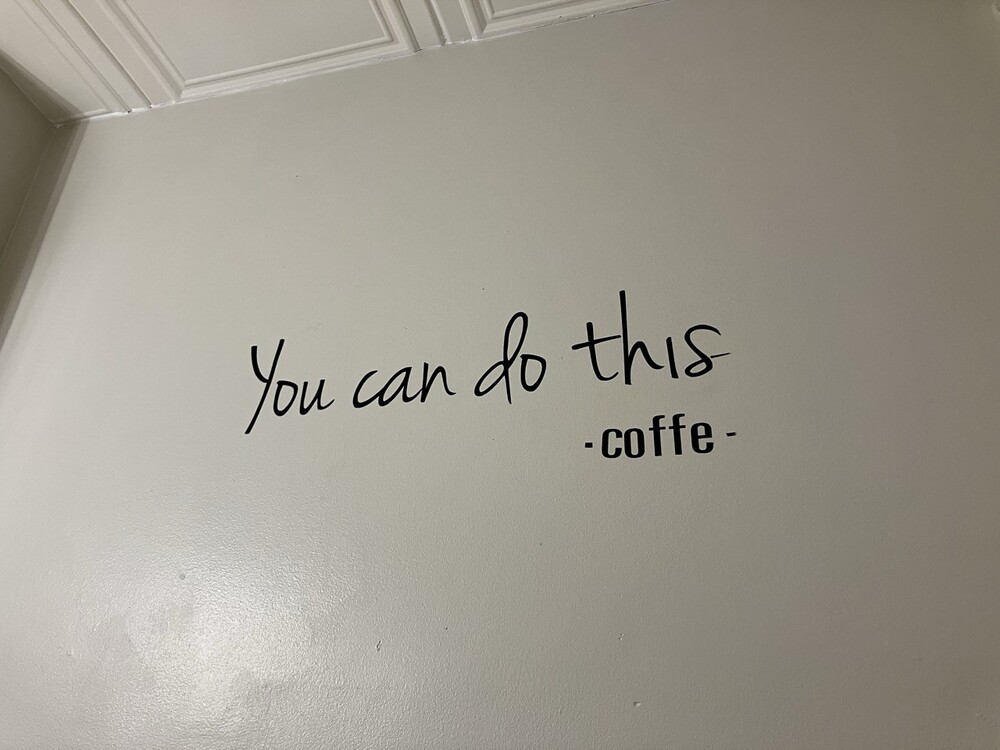 You can do this
-coffe-